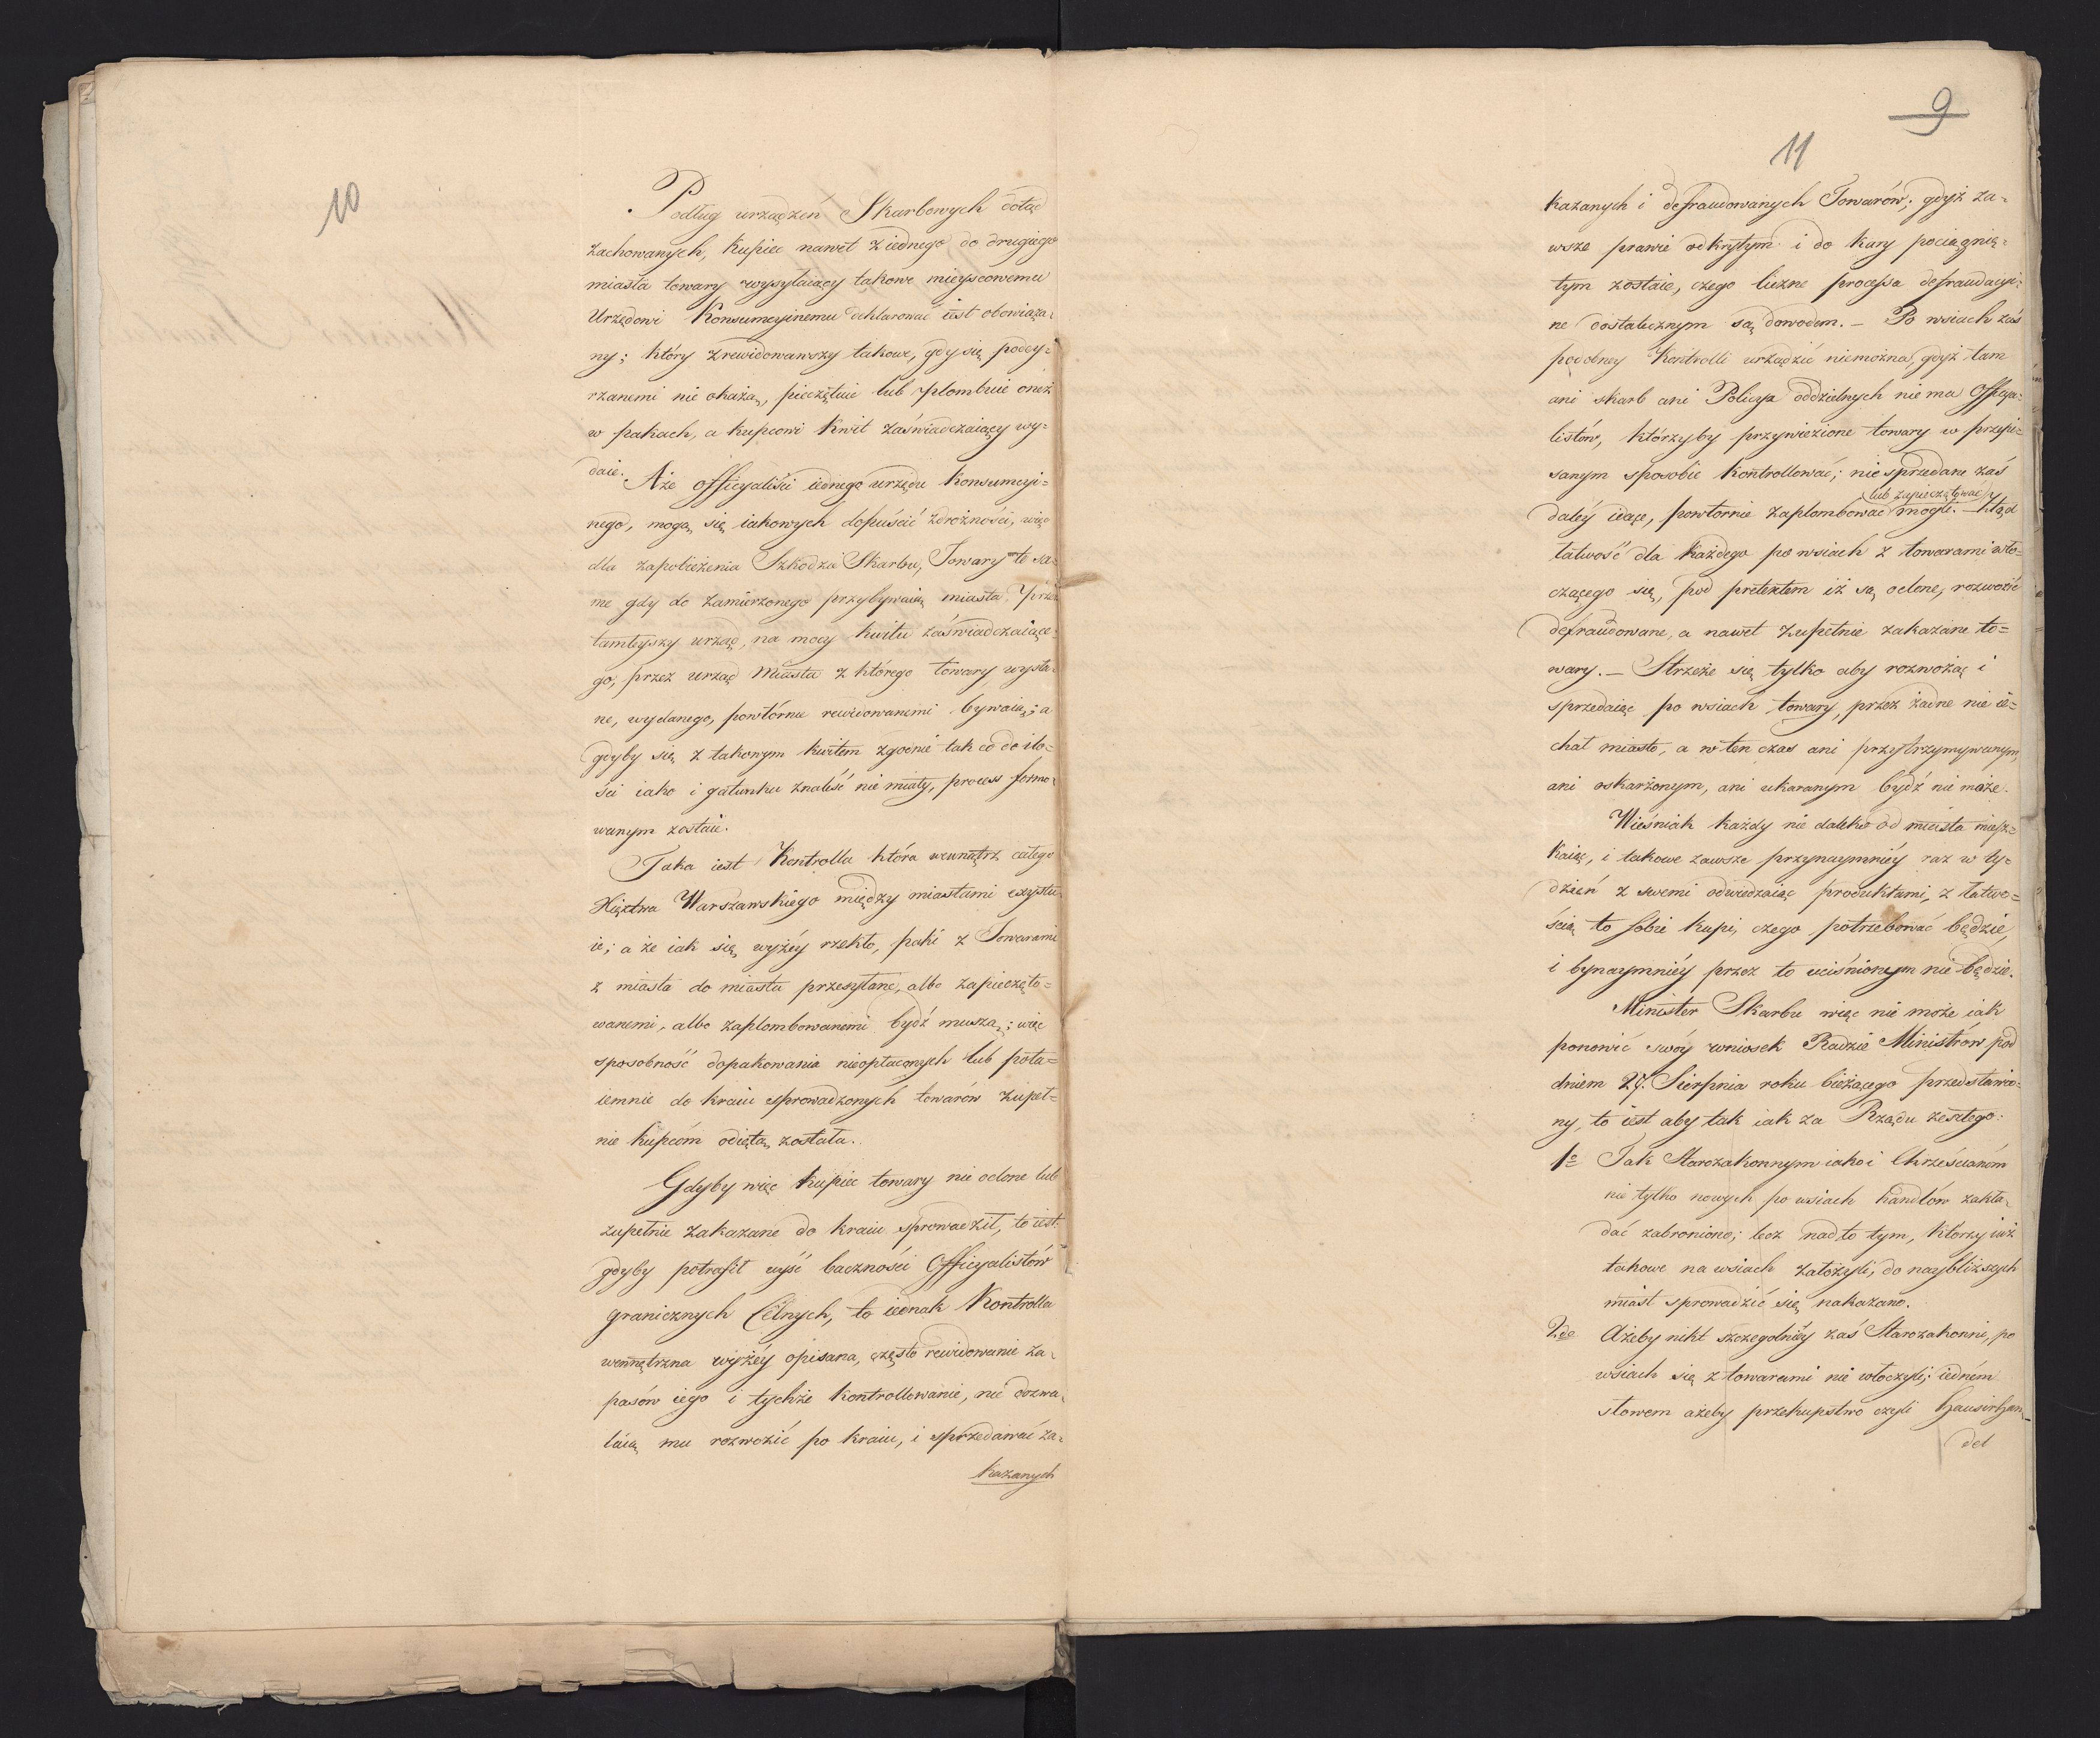 10
Podług urządzeń Skarbowych dotąd
zachowanych, kupiec nawet z iednego do drugiego
miasta towary wysyłaiący takowe mieyscowemu
Urzędowi Konsumcyinemu deklarować iest obowiąza-
ny; który zrewidowawszy takowe, gdy się podey-
rzanemi nie okażą, pieczętuie lub plombuie onéż
w pakach, a kupcowi kwit zaświadczaiący wy-
daie. Aże officyaliści iednego urzędu Konsumcyi=
nego, mogą się iakowych dopuścić zdrożności, więc
dla zapobieżenia Szkodzie Skarbu, Towary te sa-
me gdy do zamierzonego przybywaią miasta, przez
tamteyszy urząd, na mocy kwitu zaświadczaiące-
go, przez urząd Miasta z którego towary wysła-
ne, wydanego, powtórnie rewidowanemi bywaią; a
gdyby się z takowym kwitem zgodnie tak co do ilo=
ści iako i gatunku znaleść nie miały, process formo-
wanym zostaie.
Taka iest Kontrolla która wewnątrz całego
Xięztwa Warszawskiego między miastami exystu-
ie; a że iak się wyżéy rzekło, paki z Towarami
z miasta do miasta przesyłane, albo zapieczęto=
wanemi, albo zaplombowanemi bydź muszą; więc
sposobność dopakowania nieopłaconych lub pota=
iemnie do kraiu sprowadzonych towarów zupeł=
nie kupcom odiętą została.
Gdyby więc kupiec towary nie oclone lub
zupełnie zakazane do kraiu sprowadził, to iest
gdyby potrafił uyść baczności Officyalistów
granicznych Celnych, to iednak Kontrolla
wewnętrzna wyżéy opisana, często rewidowanie za-
pasów iego i tychże kontrollowanie, nie dozwa-
laią mu rozwozić po kraiu, i sprzedawać za-
kazanych
9
11
kazanych i defraudowanych Towarów; gdyż za-
wsze prawie odkrytym i do kary pociągnię-
tym zostaie, czego liczne processa defraudacyi-
ne dostatecznym są dowodem. – Po wsiach zaś
podobney Kontrolli urządzić niemożna, gdyż tam
ani skarb ani Policya oddzielnych nie ma Officya-
listów, którzyby przywiezione towary w przepi-
sanym sposobie kontrollować; nie sprzedane zaś
lub zapieczętować
daléy idące, powtornie zaplombować mogli. – Ztąd
łatwość dla każdego po wsiach z towarami włó-
czącego się, pod pretextem iż są oclone, rozwozić
defraudowane, a nawet zupełnie zakazane to=
wary. – Strzeże się tylko aby rozwożąc i
sprzedaiąc po wsiach towary, przez żadne nie ie=
chał miasto, a w ten czas ani przytrzymywanym,
ani oskarżonym, ani ukaranym bydź nie może.
Wieśniak każdy nie daleko od miasta miesz=
kaiąc, i takowe zawsze przynaymniéy raz w ty-
dzień z swemi odwiedzaiąc produktami, z łatwo=
ścią to sobie kupi, czego potrzebować będzie,
i bynaymniéy przez to uciśnionym nie będzie.
Minister Skarbu więc nie może iak
ponowić swóy wniosek Radzie Ministrów pod
dniem 27. Sierpnia roku bieżącego przedstawio-
ny, to iest aby tak iak za Rządu zeszłego.
1o Tak Starozakonnym iako i Chrześcianóm
nie tylko nowych po wsiach handlów zakła-
dać zabroniono; lecz nadto tym, którzy iuż
takowe na wsiach założyli, do naybliższych
miast sprowadzić się nakazano.
2.do Ażeby nikt szczególniéy zaś Starozakonni, po
wsiach się z towarami nie włóczyli; iedném
słowem ażeby przekupstwo czyli Hausirhan-
del